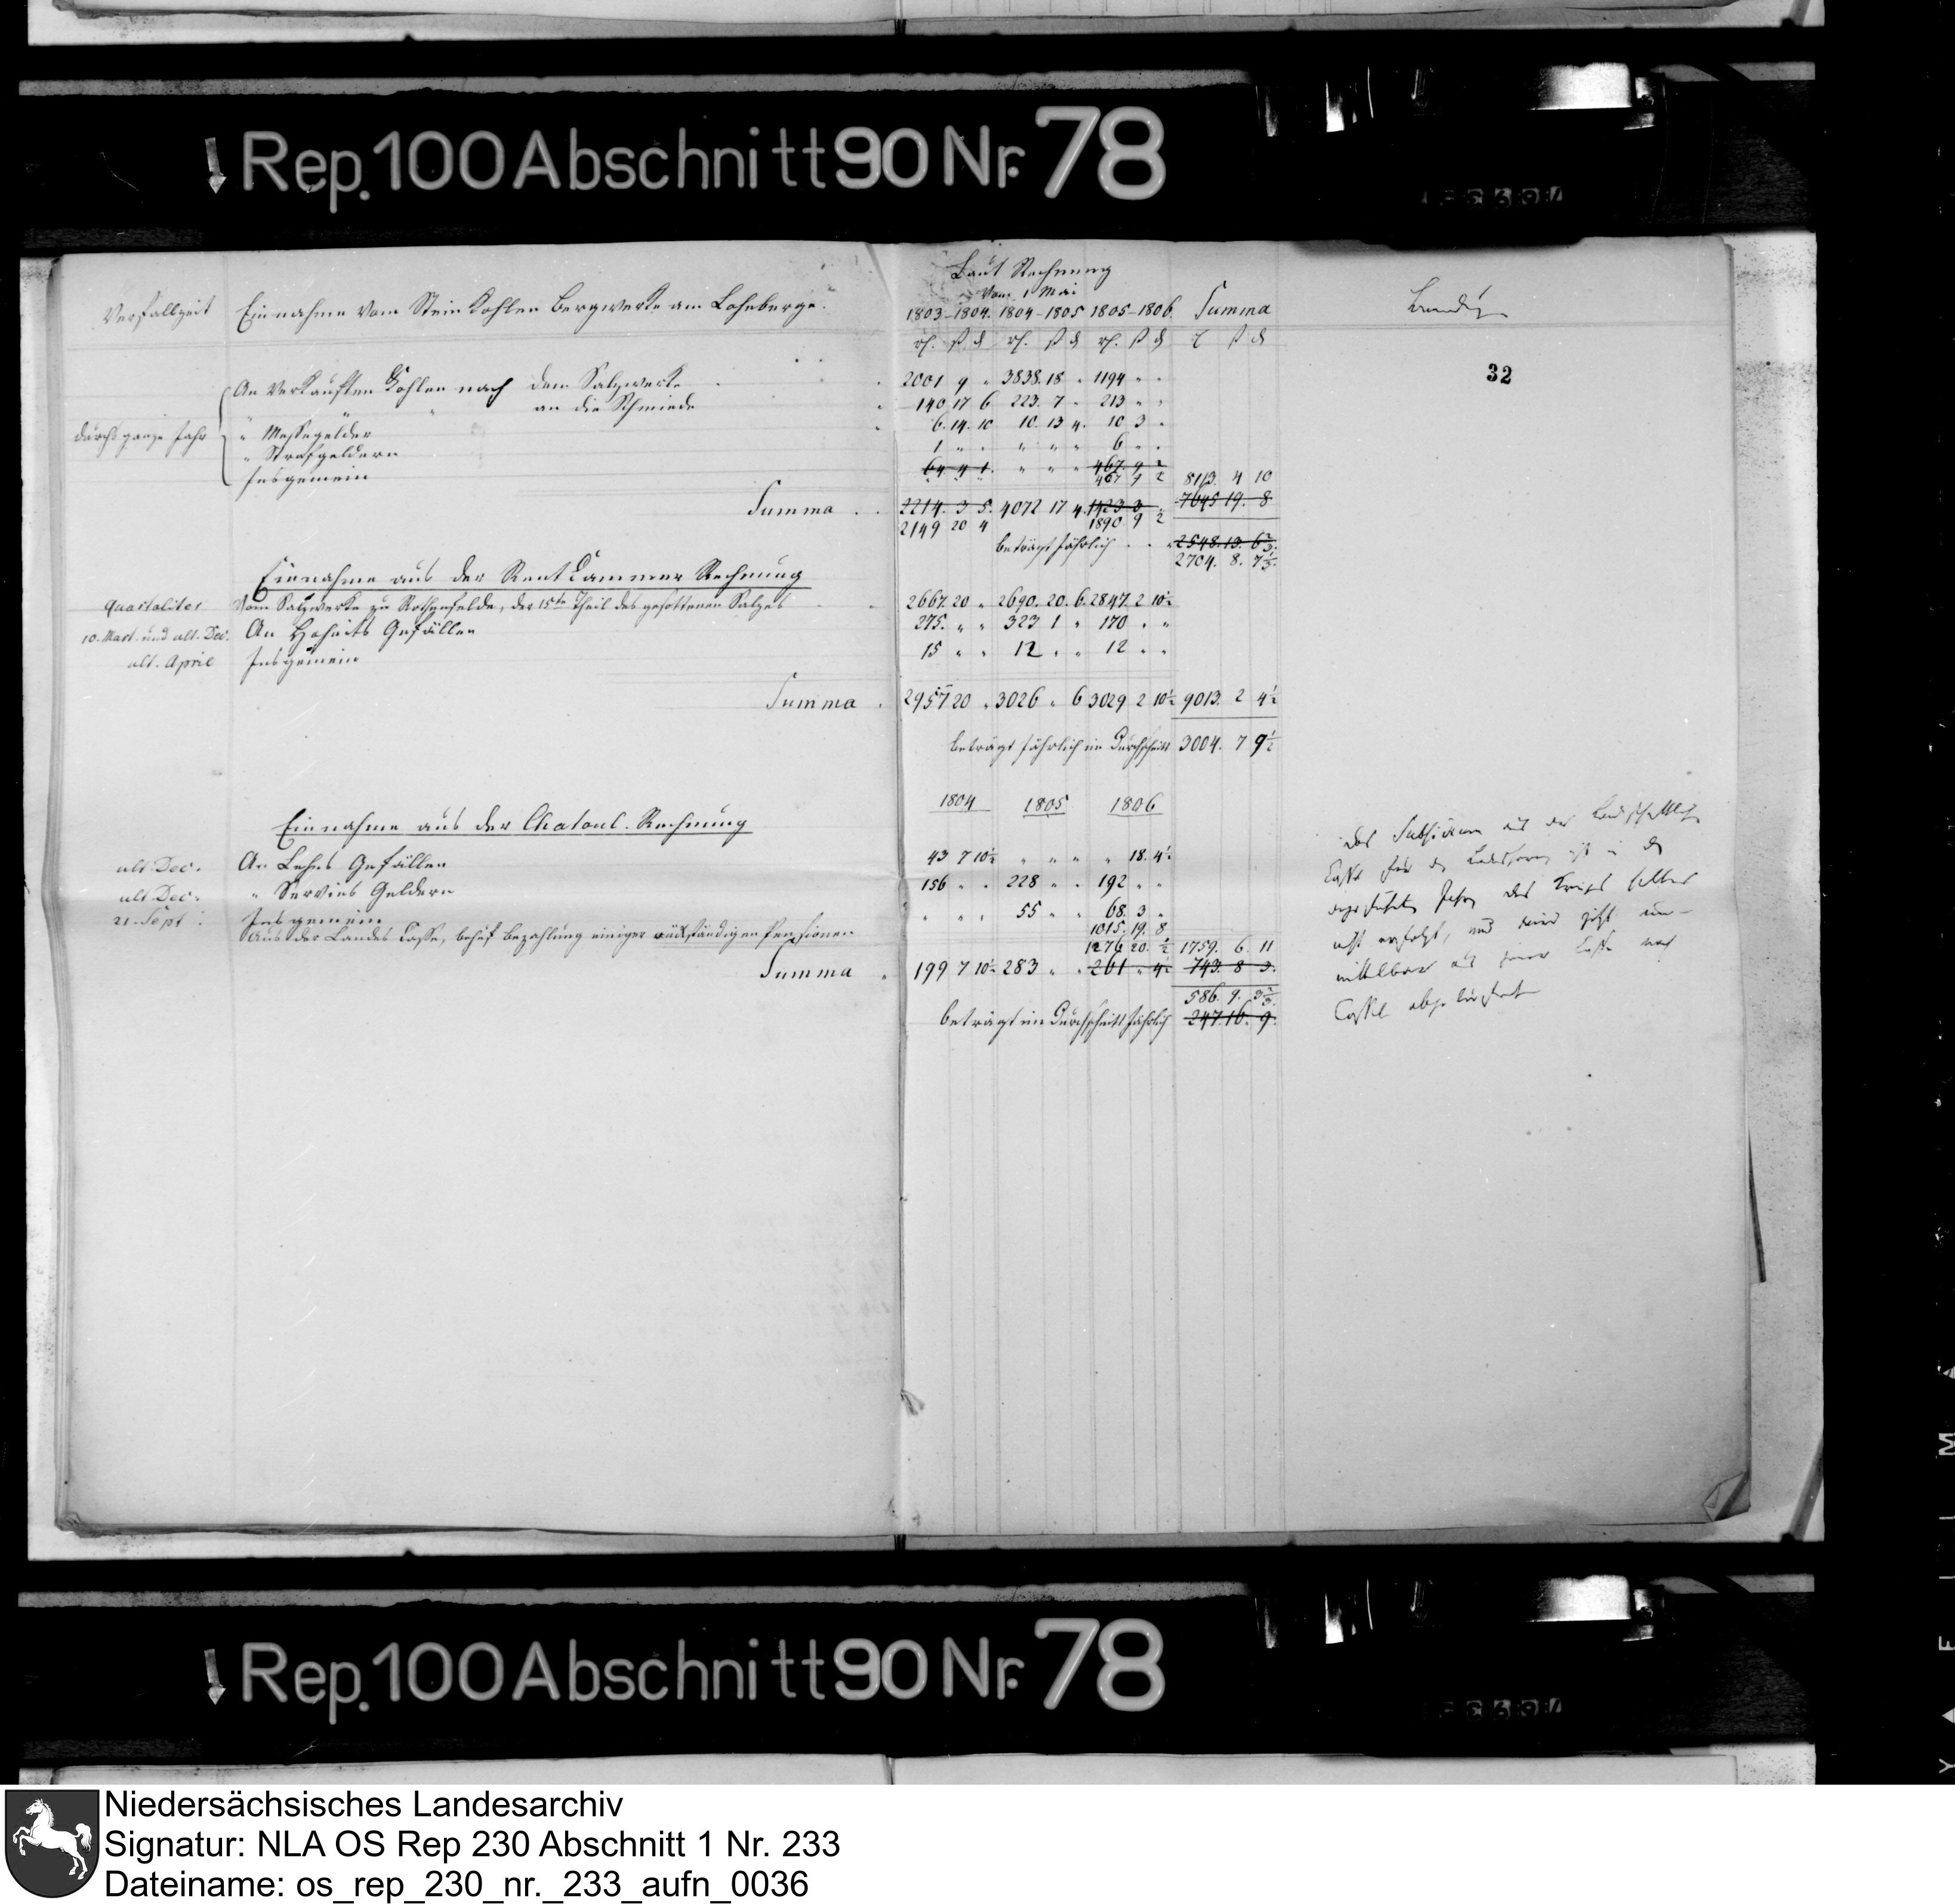 Rep. 100 Abschnitt 90 Nr. 78
Laut Rechnung
vom 1 Mai
Verfallzeit Einnahme vom Steinkohlen Bergwerke am Lohnberge. 1803-1804. 1804-1805 1805-1806. Summa
32
An verkauften Kohlen nach dem Salzwerke 2001 9 " 3838. 18 " 1194 " "
" " an die Schmiede 140 17 6 223. 7 " 213 " "
durchs ganze Jahr " Messegelder 6. 14. 10 10. 13 4. 10 3 "
" Strafgeldern 1 " " " " " 6 " "
Insgemein 64 4 1. " " " 467. 9 2
467 9 2 8113. 4 10
Summa 2214. 3 5. 4072 17 4. 1423 3 " 7645 19. 8
2149 20 4 1890 9 2
beträgt jährlich 2548. 13. 6 2/3.
2704. 8. 7 1/3.
Einnahme aus der Rentkammer Rechnung
quartaliter Vom Salzwerke zu Rothenfelde, der 15te Theil des gesottenen Salzes 2667. 20 " 2690. 20. 6. 2847. 2 10½
10. Mart. und ult. Dec. An Hoheits Gefällen 275. " " 323 1 " 170 " "
ult. April Insgemein 15 " " 12 " " 12 " "
Summa 2957 20 " 3026 " 6 3029 2 10½ 9013. 2 4½
beträgt jährlich im Durchschnitt 3004. 7 9½
1804 1805 1806
Einnahme aus der Chatoul. Rechnung
ult. Dec. An Lehns Gefällen 43 7 10½ " " " " 18. 4½
ult Dec. " Servies Geldern 156 " " 228 " " 192 " "
21. Sept. Insgemein " " " 55 " " 68. 3 "
Aus der Landes Casse, behuf Bezahlung einiger rückständigen Pensionen 1015. 19. 8
1276 20. ½ 1759. 6. 11
Summa 199 7 10½ 283 " " 261 " 4½ 743. 8 3.
586. 9. 3 2/3.
beträgt im Durchschnitt jährlich 247. 16. 9.
Das Subsidium aus der
Casse für ist in
Jahren des Krieges
nicht erfolgt, und wird jetzt un-
mittelbar aus Casse nach
Cassel
Rep. 100 Abschnitt 90 Nr. 78
Niedersächsisches Landesarchiv
Signatur: NLA OS Rep 230 Abschnitt 1 Nr. 233
Dateiname: os_rep_230_nr._233_aufn_0036